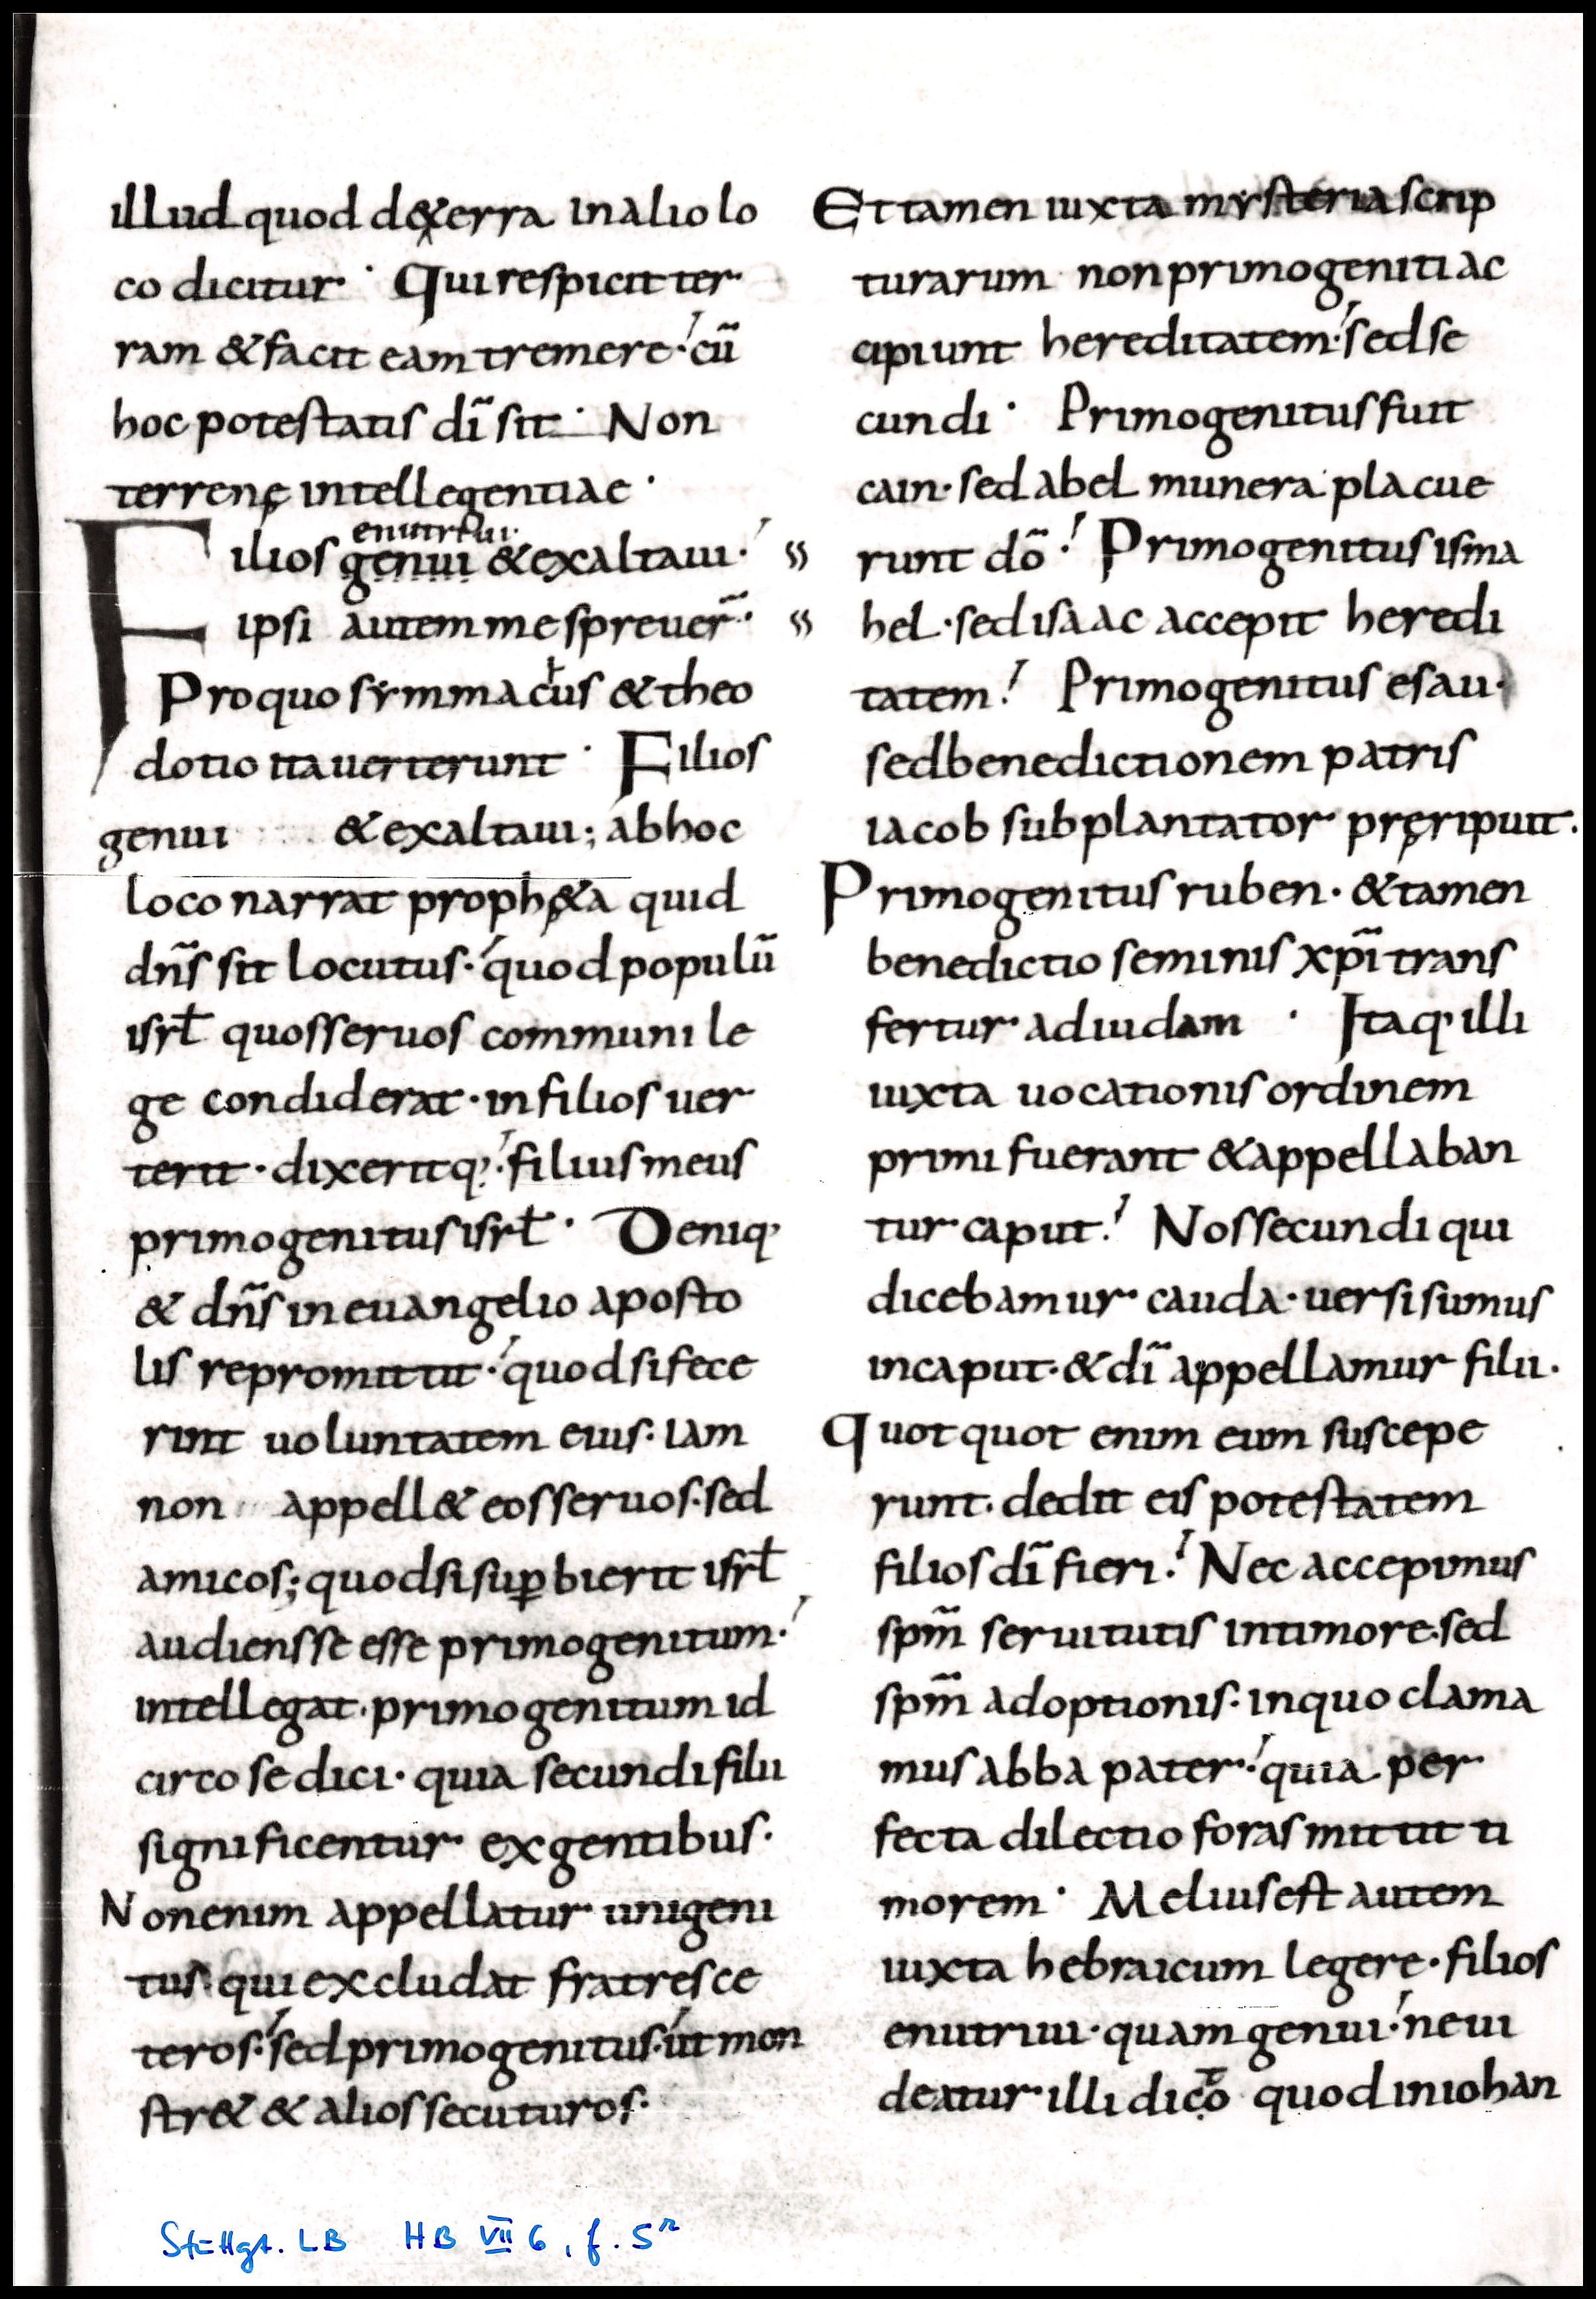 illud quod d&erra in alio lo
co dicitur · Qui respicit ter
ram & facit eam tremere · cū
hoc potestatis dī sit · Non
terrenę intellegentiae ·
enutriui ·
Filios genui & exaltaui ·
ipsi autem me spreuer̄ ·
Pro quo symmachus & theo
dotio ita uerterunt · Filios
genui & exaltaui ; ab hoc
loco narrat proph&a quid
dn̄s sit locutus · quod populū
isrł quos seruos communi le
ge condiderat · in filios uer
terit · dixeritq · filius meus
primogenitus isrł · Deniq
& dn̄s in euangelio aposto
lis repromittit · quod si fece
rint uoluntatem eius · iam
non appell& eos seruos · sed
amicos ; quod si suꝑbierit isrł
audiens se esse primogenitum ·
intellegat · primogenitum id
circo se dici · quia secundi filii
significentur ex gentibus ·
Non enim appellatur unigeni
tus · qui excludat fratres ce
teros · sed primogenitus · ut mon
str& & alios secuturos ·
Et tamen iuxta mysteria scrip
turarum non primogeniti ac
cipiunt hereditatem · sed se
cundi · Primogenitus fuit
cain · sed abel munera placue
runt dō · Primogenitus isma
hel · sed isaac accepit heredi
tatem · Primogenitus esau ·
sed benedictionem patris
iacob subplantator pręripuit ·
Primogenitus ruben · & tamen
benedictio seminis xpī trans
fertur ad iudam · Itaq illi
iuxta uocationis ordinem
primi fuerant & appellaban
tur caput · Nos secundi qui
dicebamur cauda · uersi sumus
in caput · & dī appellamur filii ·
Quotquot enim eum suscepe
runt · dedit eis potestatem
filios dī fieri · Nec accepimus
spm̄ seruitutis in timore · sed
spm̄ adoptionis · in quo clama
mus abba pater · quia per
fecta dilectio foras mittit ti
morem · Melius est autem
iuxta hebraicum legere · filios
enutriui · quam genui · ne ui
deatur illi dicto quod in iohan
Stuttgt. LB HB VII 6, f. 5r